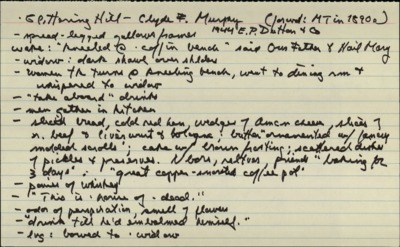 Glittering Hill - Clyde F. Murphy (found: MT in 1890s)
- spread-legged gallows frames 1944 E.P. Dutton & Co
wake: "kneeled @ coffin bench" said Our Father & Hail Mary
- widow: dark shawl over shoulders
- women in turns @ kneeling bench, went to dining rm & whispered to widow
- "take aboard" drinks
- men gather in kitchen
- sliced bread, cold red ham, wedges of Amcn cheese, slices of
r. beef & liverwurst & bologna; butter "ornamented w/ fancy
molded scrolls"; cake w/ brown frosting; scattered dishes
of pickles & preserves. Nbors, reltves, friends "baking for
3 days". "great copper-snouted coffee pot"
- ponies of whiskey
- "This is house of decd."
- odor of perspiration, smell of flowers
- "drink till he'd embalmed himself."
- bowed to widow